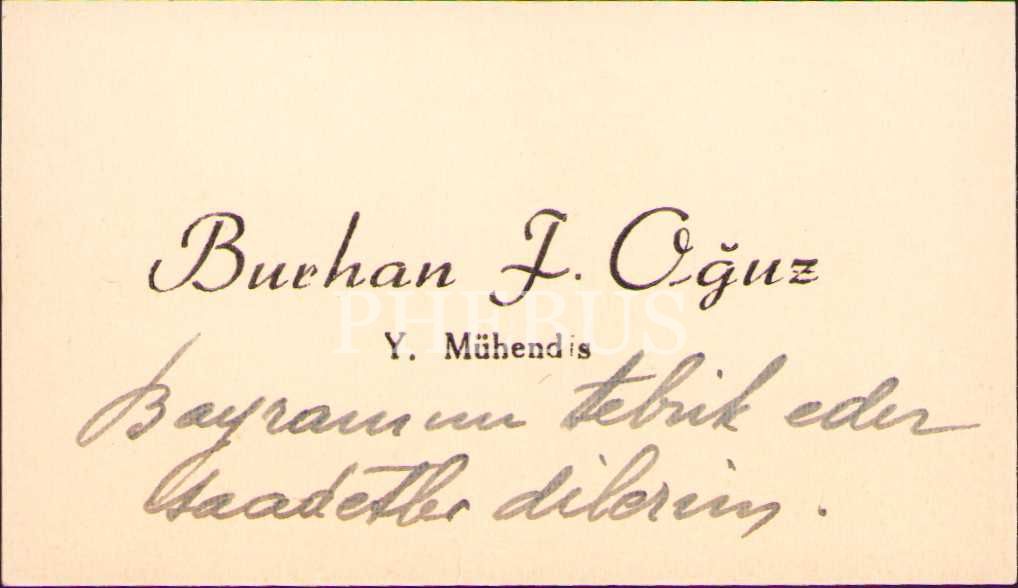 Burhan F. Oğuz
PHEBUS
Y. Mühendis
Bayramını tebrik eder
saadetler dilerim.